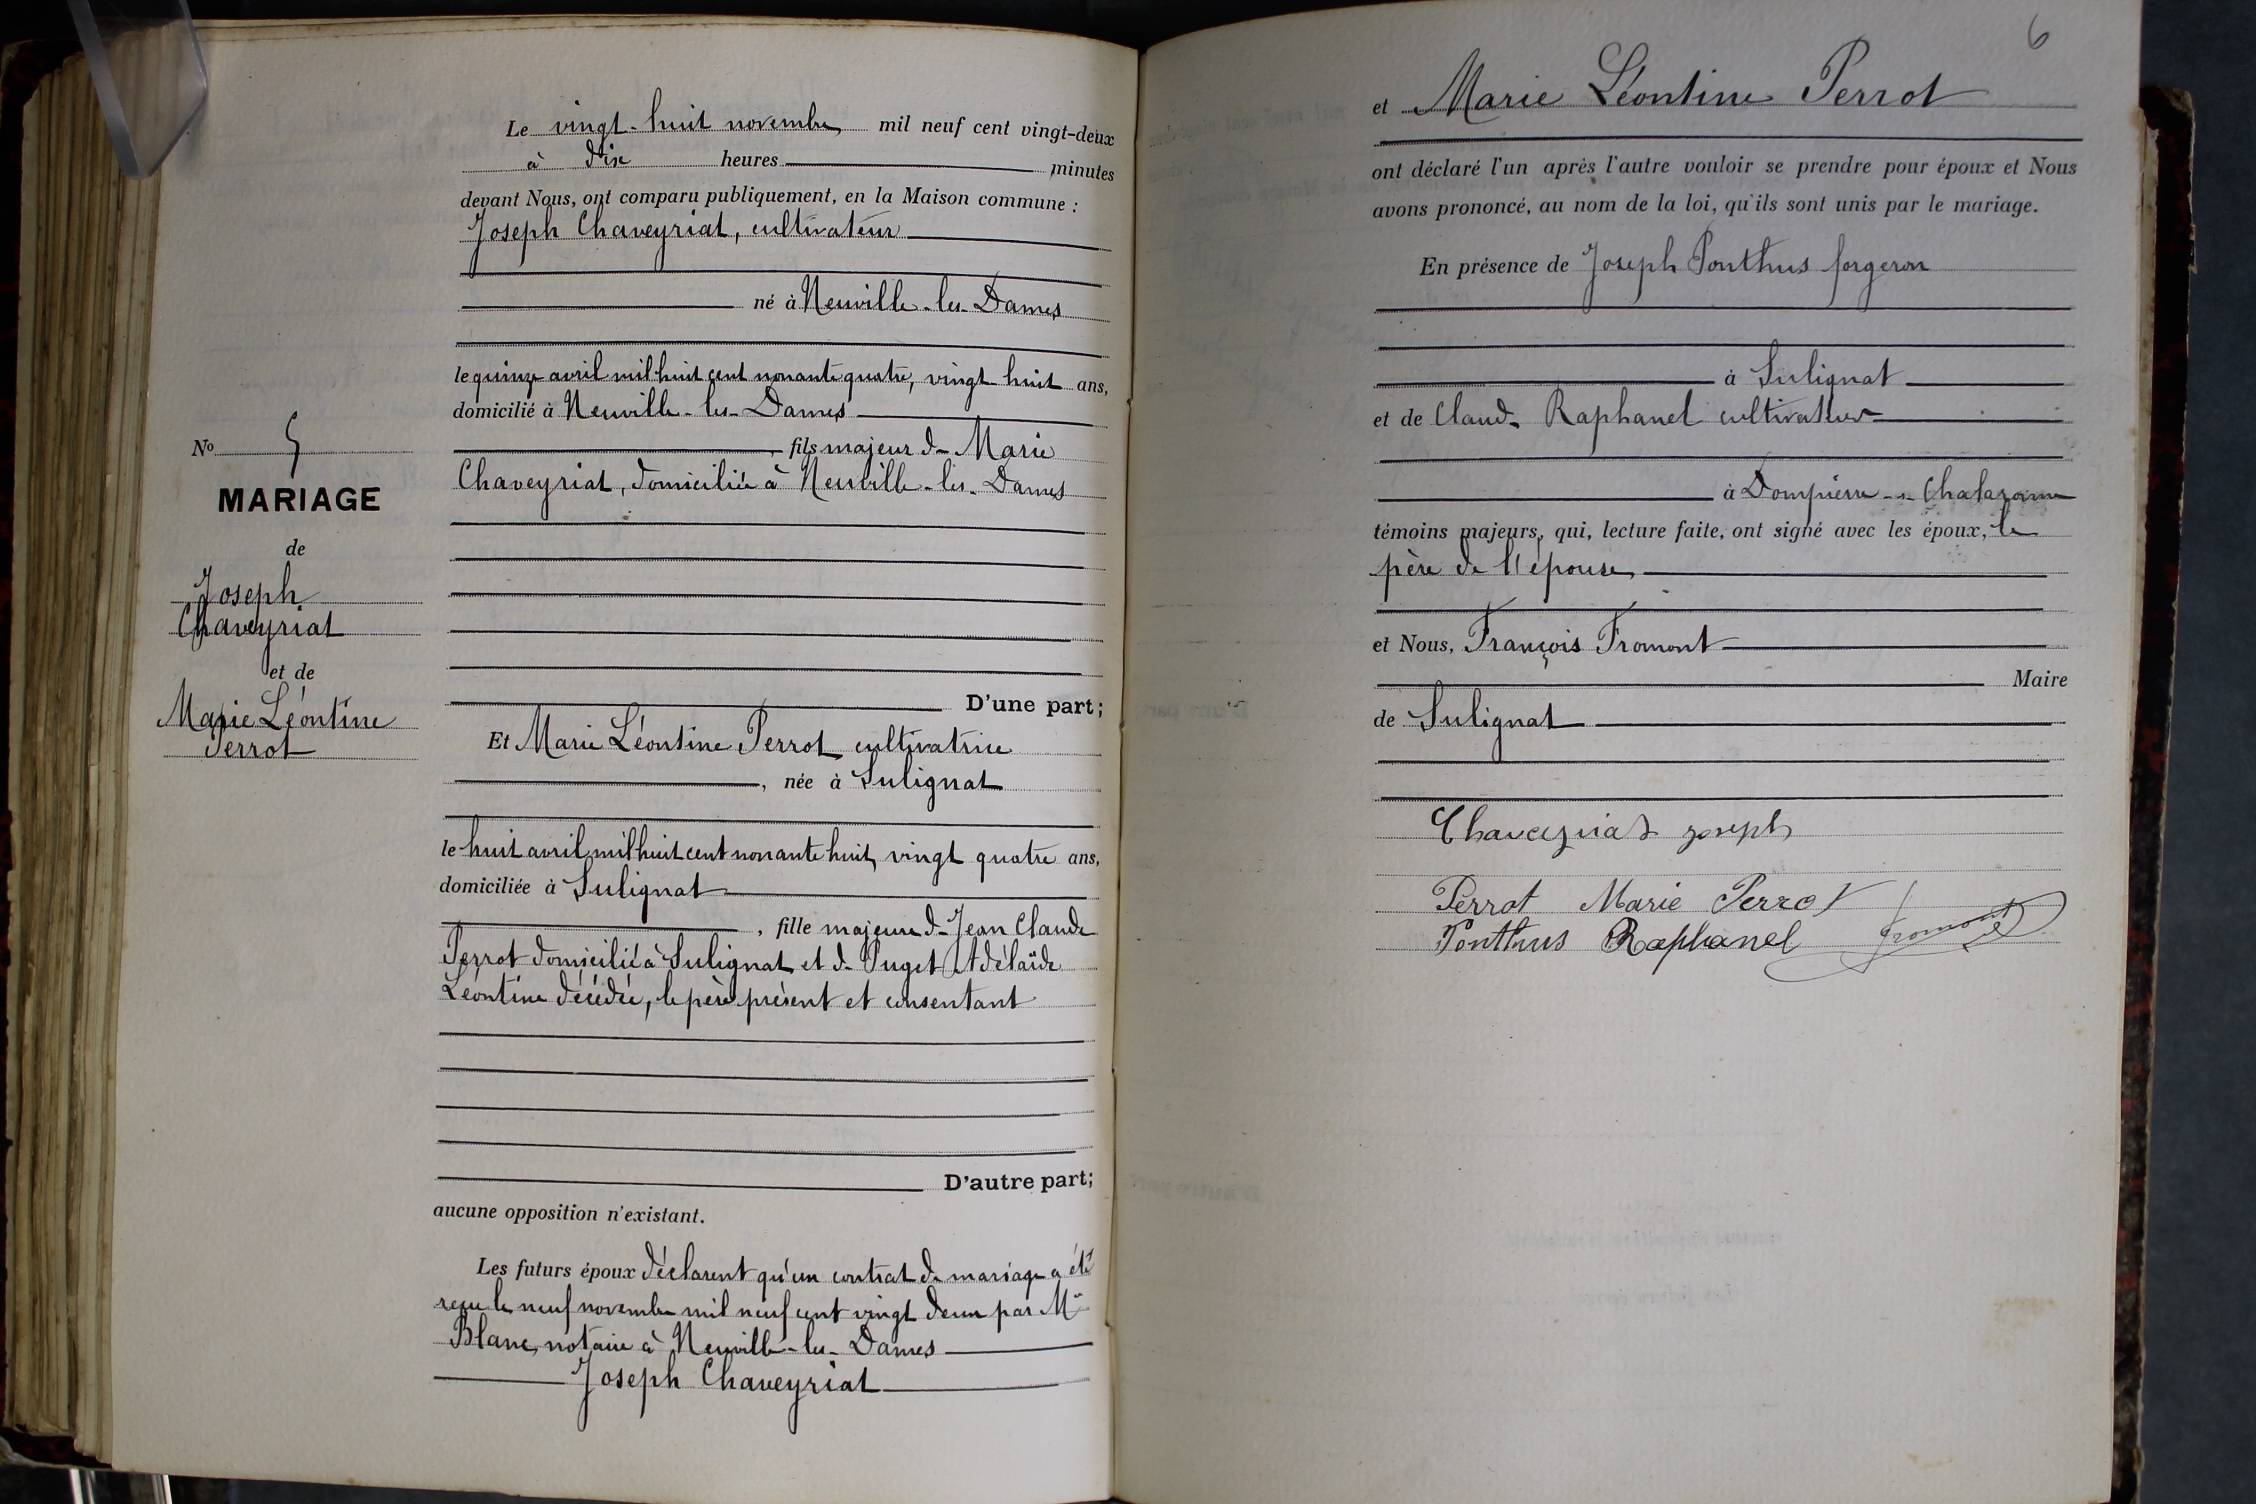 Le vingt-huit novembre mil neuf cent vingt-deux
à dix heures minutes
devant Nous, ont comparu publiquement, en la Maison commune :
Joseph Chaveyriat, cultivateur
né à Neuville-les-Dames
le quinze avril mil huit cent nonante quatre, vingt huit ans,
domicilié à Neuville-les-Dames
fils majeur de Marie
Chaveyriat, domiciliée à Neuville-les-Dames
No 5
MARIAGE
de
Joseph
Chaveyriat
et de
Marie Léontine
Perrot
D'une part;
Et Marie Léontine Perrot cultivatrice
, née à Sulignat
le huit avril mil huit cent nonante huit, vingt quatre ans,
domiciliée à Sulignat
, fille majeure de Jean Claude
Perrot domicilié à Sulignat et de Puget Adélaïde
Léontine décédée, le père présent et consentant
D'autre part;
aucune opposition n'existant.
Les futurs époux déclarent qu'un contrat de mariage a été
reçu le neuf novembre mil neuf cent vingt deux par Me
Blanc, notaire à Neuville-les-Dames
Joseph Chaveyriat
6
et Marie Léontine Perrot
ont déclaré l'un après l'autre vouloir se prendre pour époux et Nous
avons prononcé, au nom de la loi, qu'ils sont unis par le mariage.
En présence de Joseph Ponthus forgeron
à Sulignat
et de Claude Raphanel cultivateur
à Dompierre-s-Chalaronne
témoins majeurs, qui, lecture faite, ont signé avec les époux, le
père de l'épouse,
et Nous, François Fromont
Maire
de Sulignat
Chaveyriat joseph
Perrot Marie Perrot
Ponthus Raphanel Fromont